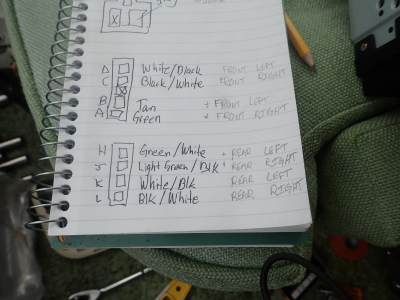 D White/Black FRONT LEFT
C Black/White FRONT RIGHT
B Tan + FRONT LEFT
A Green + FRONT RIGHT
H Green/White - REAR LEFT
J Light Green/Blk + REAR RIGHT
K White/Blk REAR LEFT
L Blk/White REAR RIGHT